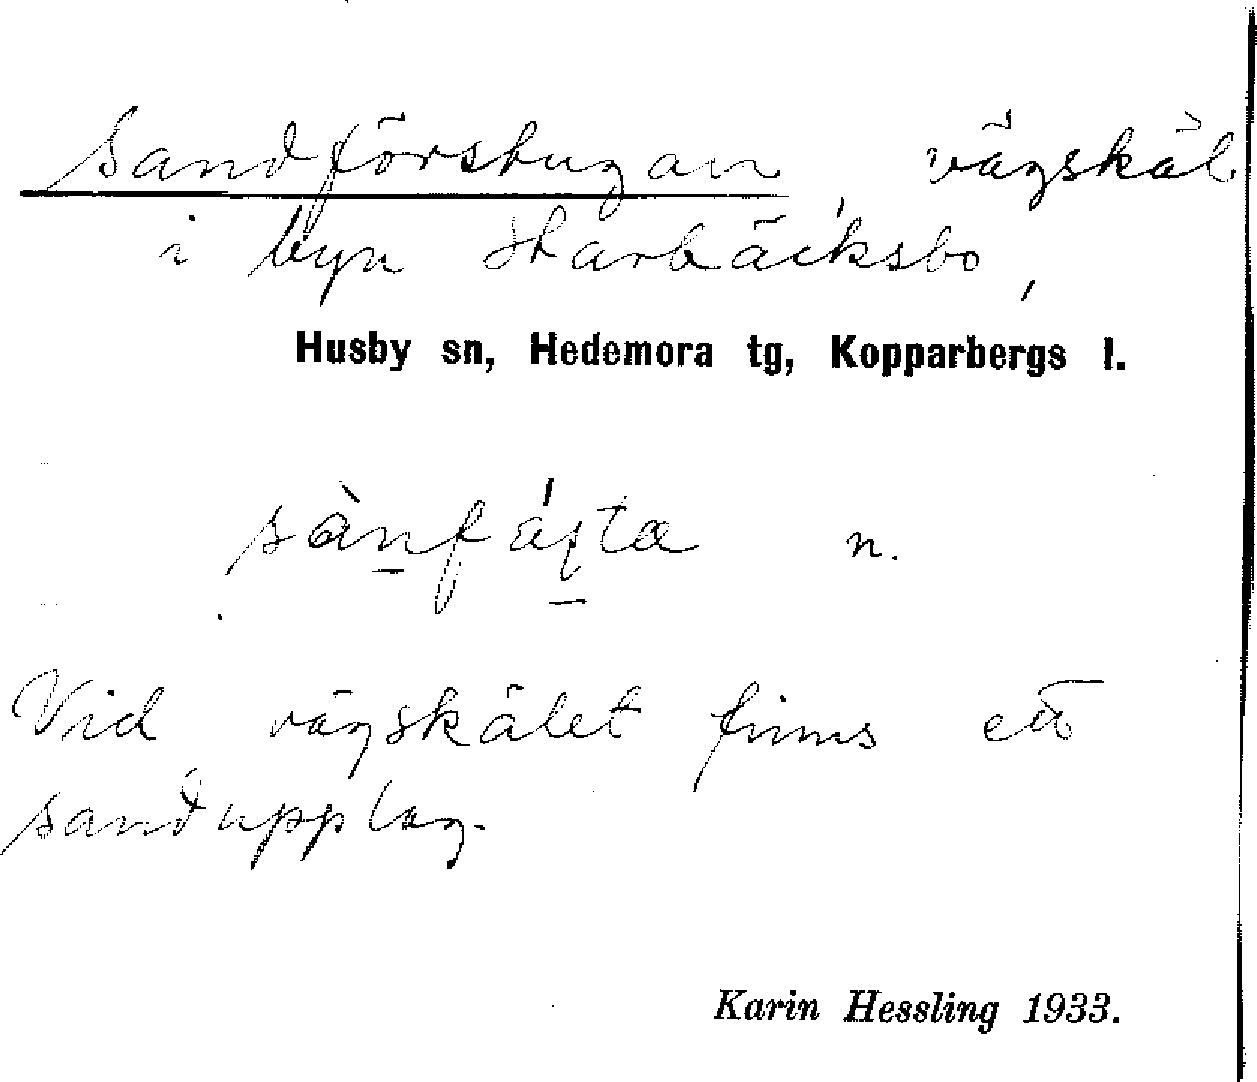 Sandförstugan, vägskäl
i byn Starbäcksbo,
Husby sn, Hedemora tg, Kopparbergs l.
n.
Vid vägskälet finns ett
sandupplag.
Karin Hessling 1933.